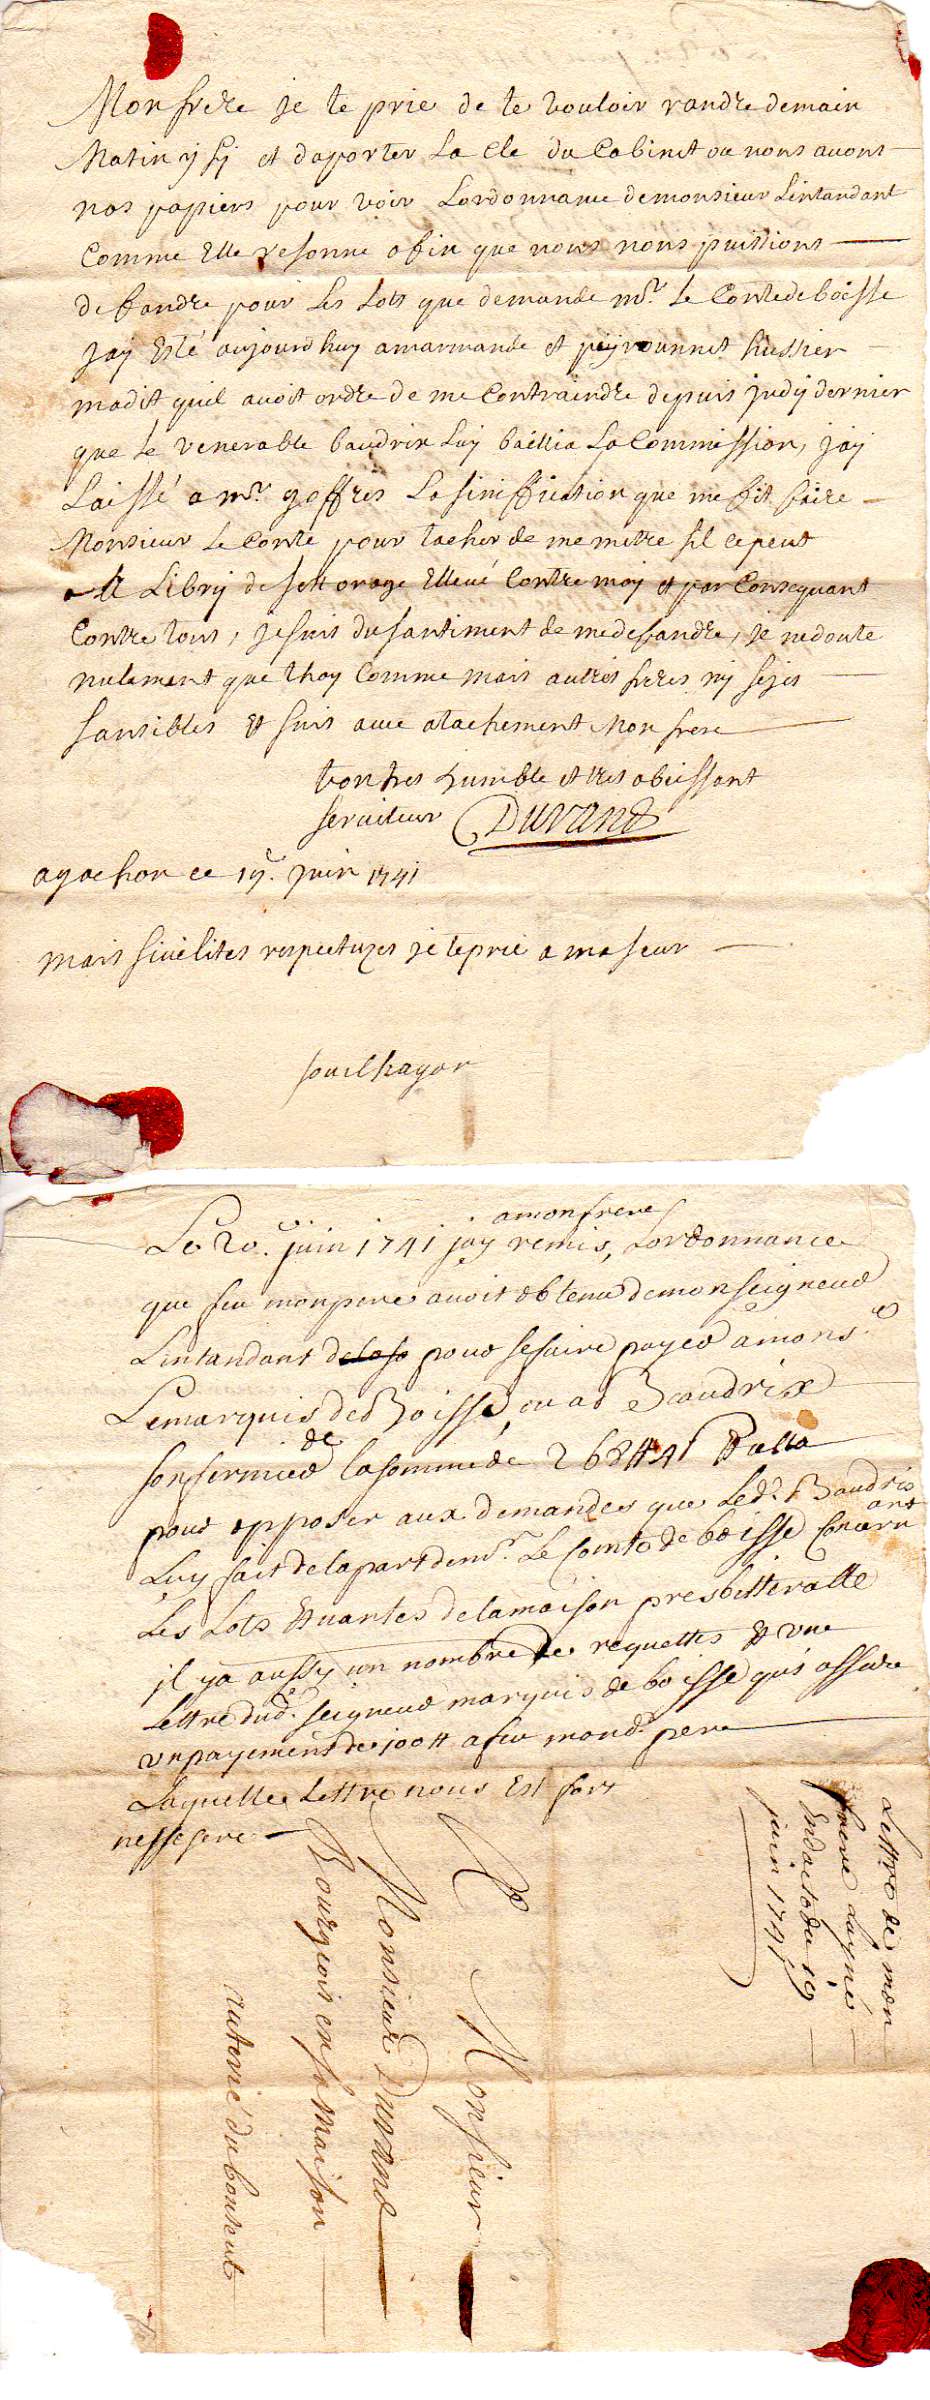 Mon frere je te prie de te vouloir randre demain
Matin ysy et daporter la cle du Cabinet ou nous avons
nos papiers pour voir Lordonnance de monsieur Lintandant
Comme Elle resonne afin que nous nous puissions
deffandre pour les Lots que demande mr. le Conte de boisse
Jay Esté aujourdhuy a marmande et peyrounnet huissier
madit quil avoit ordre de me Contraindre depuis judy dernier
que le venerable baudrix luy baillia la Commission, jay
Laissé a mr. goffres la siniffiction que me fit faire
Monsieur le Conte pour tacher de me metre sil ce peut
a Libry de sest orage Elleué Contre moy et par Consequant
Contre tous, je suis du santiment de me defandre, je ne doute
nulement que thoy Comme mais autres freres ny sejes
sansibles et suis avec atachement Mon frere
ton tres humble et tres obeissant
serviteur Durand
a gachon ce 19e. juin 1741
mais sivelites respectuzes je te prie a ma seur
souilhagon
a mon frere
Le 20e. juin 1741 jay remis, Lordonnance
que feu mon pere avoit obtenu de monseigneur
Lintandant pour se faire payer a mons.r
Le marquis de Boisse, ou a Baudrix
son fermier de la somme de 268 ₶ 4s
pour opposer aux demandes que Led. Baudrix
Luy fait de la part de mr. Le Comte de boisse Concernant
Les Lots de la maison presbitteralle
il y a aussy un nombre de requettes et une
Lettre dud. seigneur marquis de boisse qui assure
un payement de 100 ₶ a feu mond. pere
Laquelle Lettre nous Est fort
nessesere
Lettre de mon
frere layné
En dacte du 19
juin 1741
A
Monsieur
Monsieur Durand
Bourgeois en sa Maison